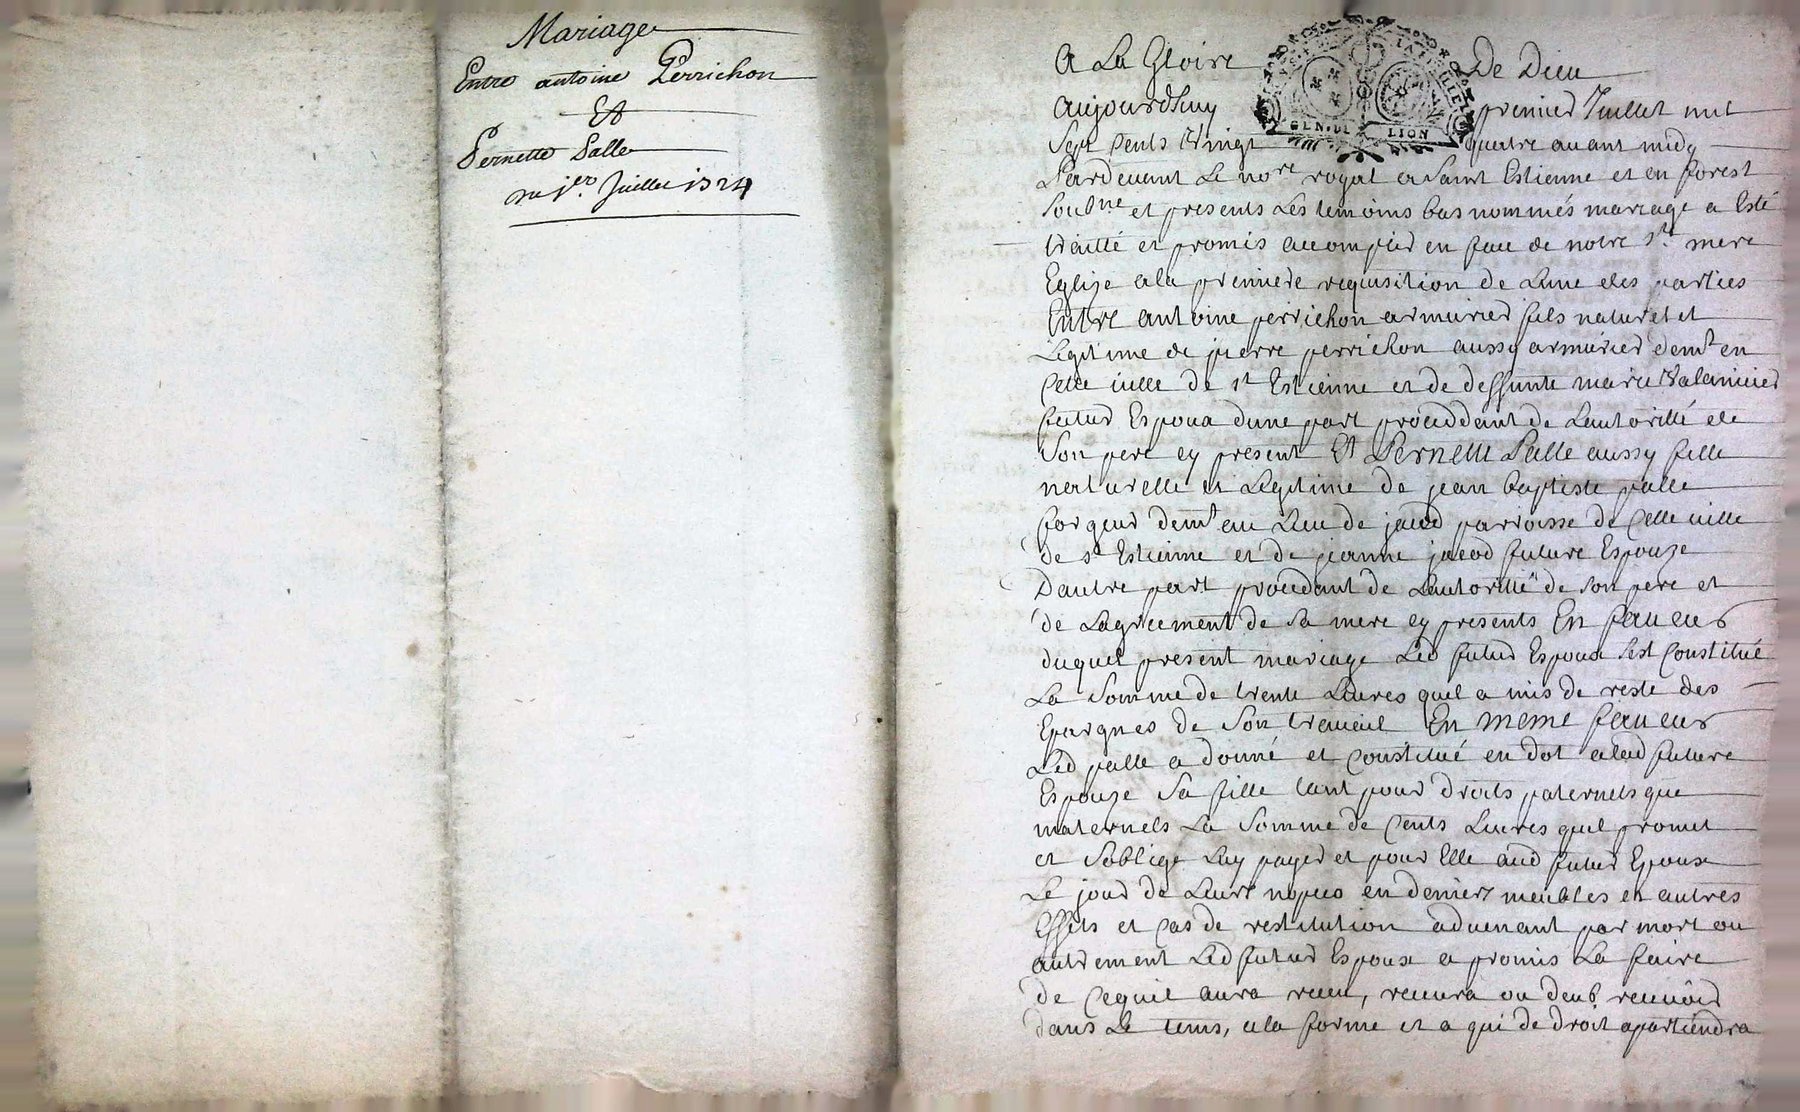 Mariage
Entre antoine Perrichon
Et
Pernette Palle
du 1er. Juillet 1724
A La Gloire De Dieu
GEN. DE LION
aujourdhuy premier Juillet mil
Sept Cents Vingt quatre avant midy
Pardevant Le nore royal a Saint Estienne et en forest
Soubne et presents Les temoins bas nommés mariage a Esté
traitté et promis accomplir en face de notre Ste mere
Eglize ala premiere requisition de Lune des parties
Entre antoine perrichon armurier fils naturel et
Legitime de pierre perrichon aussy armurier demt en
Cette ville de st Estienne et de deffunte marie
futur Espoux dune part proceddant de Lautoritté de
Son pere cy present Et Pernette Palle aussy fille
naturelle et Legitime de jean baptiste palle
forgeur demt au Lieu de jacod parroisse de Cette ville
de st Estienne et de jeanne jacod future Espouze
Dautre part procedant de Lautoritté de Son pere et
de Lagreement de Sa mere cy presents En faveur
duquel present mariage Led futur Espoux Sest Constitué
La Somme de trente Livres quil a mis de reste des
Epargnes de Son travail En meme faveur
Led palle a donné et Constitué en dot alad future
Espouze Sa fille tant pour droits paternels que
maternels La Somme de Cents Livres quil promet
et Soblige Luy payer et pour Elle aud futur Epoux
Le jour de Leurs nopces en deniers meubles et autres
Effets et Cas de restitution advenant par mort ou
autrement Led futur Espoux a promis La faire
de Cequil aura receu, recevra ou deub recevoir
dans Le tems, ala forme et a qui de droit apartiendra